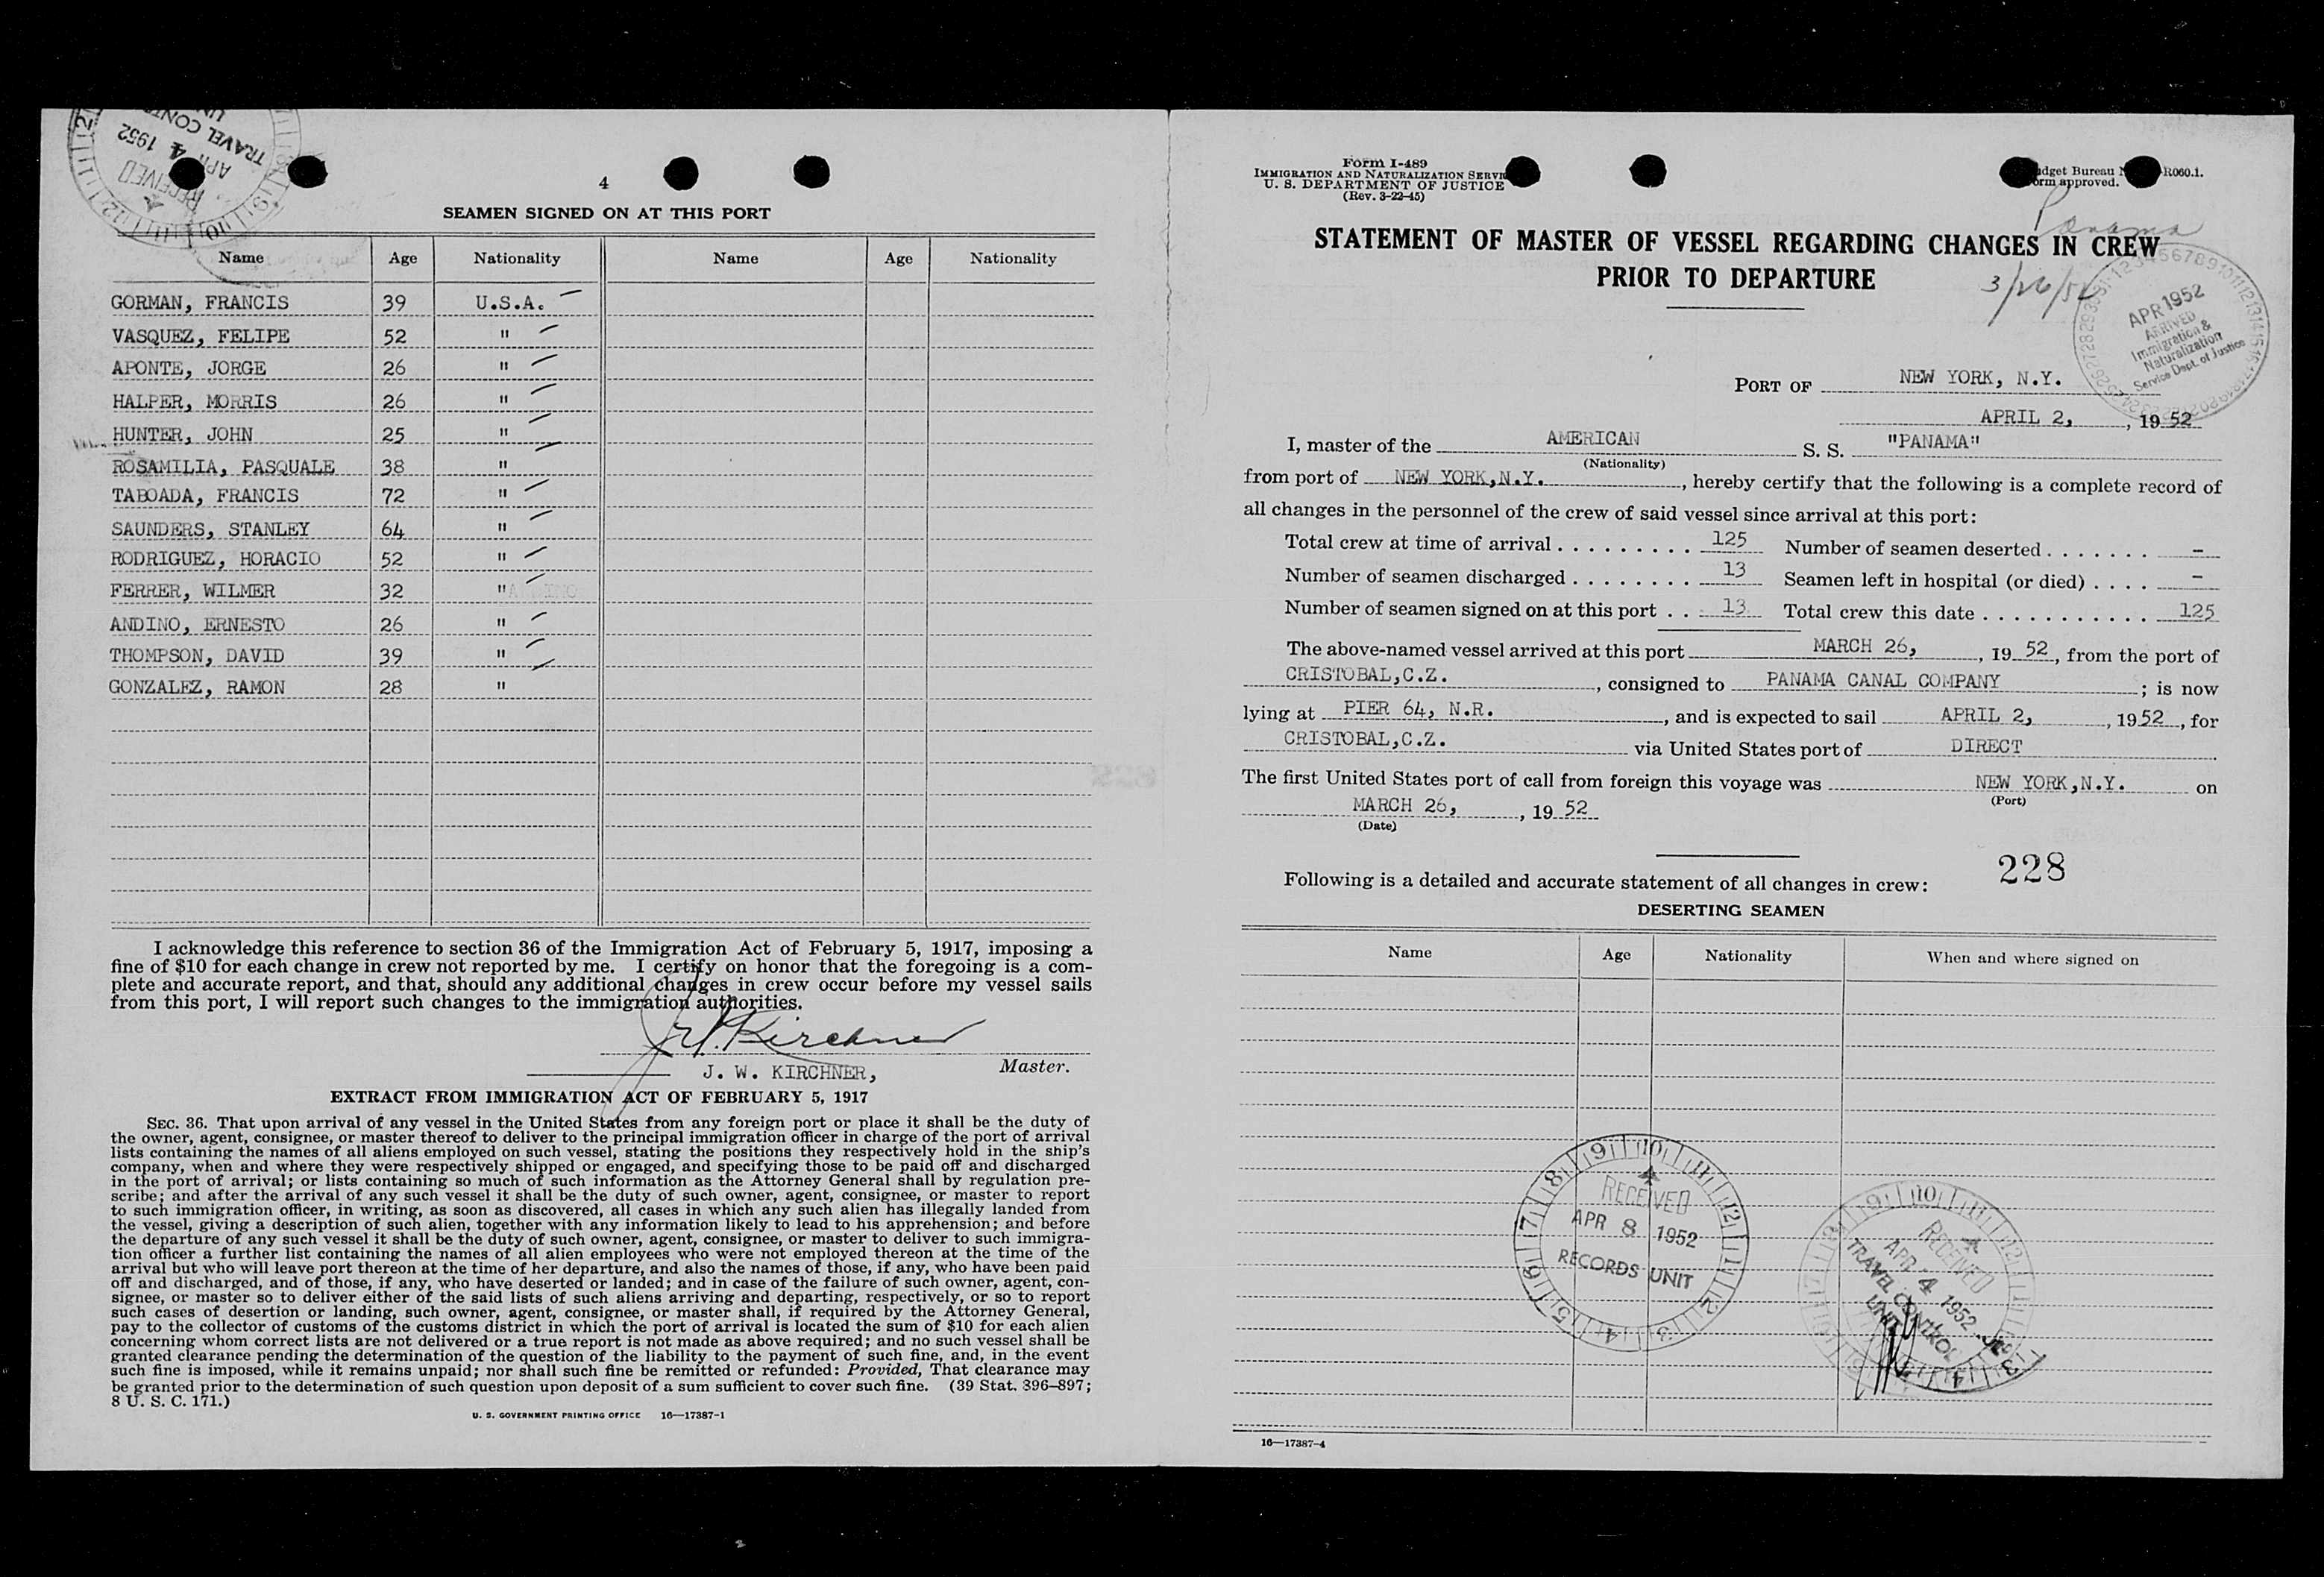 RECEIVED
APR 4 1952
TRAVEL CONT
4
SEAMEN SIGNED ON AT THIS PORT
Name Age Nationality Name Age Nationality
GORMAN, FRANCIS 39 U.S.A.
VASQUEZ, FELIPE 52 "
APONTE, JORGE 26 "
HALPER, MORRIS 26 "
HUNTER, JOHN 25 "
ROSAMILIA, PASQUALE 38 "
TABOADA, FRANCIS 72 "
SAUNDERS, STANLEY 64 "
RODRIGUEZ, HORACIO 52 "
FERRER, WILMER 32 "
ANDINO, ERNESTO 26 "
THOMPSON, DAVID 39 "
GONZALEZ, RAMON 28 "
I acknowledge this reference to section 36 of the Immigration Act of February 5, 1917, imposing a
fine of $10 for each change in crew not reported by me. I certify on honor that the foregoing is a com-
plete and accurate report, and that, should any additional changes in crew occur before my vessel sails
from this port, I will report such changes to the immigration authorities.
J. W. Kirchner
J. W. KIRCHNER, Master.
EXTRACT FROM IMMIGRATION ACT OF FEBRUARY 5, 1917
SEC. 36. That upon arrival of any vessel in the United States from any foreign port or place it shall be the duty of
the owner, agent, consignee, or master thereof to deliver to the principal immigration officer in charge of the port of arrival
lists containing the names of all aliens employed on such vessel, stating the positions they respectively hold in the ship's
company, when and where they were respectively shipped or engaged, and specifying those to be paid off and discharged
in the port of arrival; or lists containing so much of such information as the Attorney General shall by regulation pre-
scribe; and after the arrival of any such vessel it shall be the duty of such owner, agent, consignee, or master to report
to such immigration officer, in writing, as soon as discovered, all cases in which any such alien has illegally landed from
the vessel, giving a description of such alien, together with any information likely to lead to his apprehension; and before
the departure of any such vessel it shall be the duty of such owner, agent, consignee, or master to deliver to such immigra-
tion officer a further list containing the names of all alien employees who were not employed thereon at the time of the
arrival but who will leave port thereon at the time of her departure, and also the names of those, if any, who have been paid
off and discharged, and of those, if any, who have deserted or landed; and in case of the failure of such owner, agent, con-
signee, or master so to deliver either of the said lists of such aliens arriving and departing, respectively, or so to report
such cases of desertion or landing, such owner, agent, consignee, or master shall, if required by the Attorney General,
pay to the collector of customs of the customs district in which the port of arrival is located the sum of $10 for each alien
concerning whom correct lists are not delivered or a true report is not made as above required; and no such vessel shall be
granted clearance pending the determination of the question of the liability to the payment of such fine, and, in the event
such fine is imposed, while it remains unpaid; nor shall such fine be remitted or refunded: Provided, That clearance may
be granted prior to the determination of such question upon deposit of a sum sufficient to cover such fine. (39 Stat. 896–897;
8 U. S. C. 171.)
U. S. GOVERNMENT PRINTING OFFICE 16—17387-1
Form I-489
IMMIGRATION AND NATURALIZATION SERVI
U. S. DEPARTMENT OF JUSTICE
(Rev. 3-22-45)
dget Bureau R060.1.
orm approved.
Panama
STATEMENT OF MASTER OF VESSEL REGARDING CHANGES IN CREW
PRIOR TO DEPARTURE
3/26/52
APR 1952
ARRIVED
Immigration &
Naturalization
Service Dept. of Justice
PORT OF NEW YORK, N.Y.
APRIL 2, , 19 52
I, master of the AMERICAN S. S. "PANAMA"
(Nationality)
from port of NEW YORK,N.Y. , hereby certify that the following is a complete record of
all changes in the personnel of the crew of said vessel since arrival at this port:
Total crew at time of arrival . . . . . . . . . 125 Number of seamen deserted . . . . . . . –
Number of seamen discharged . . . . . . . . 13 Seamen left in hospital (or died) . . . . –
Number of seamen signed on at this port . . 13 Total crew this date . . . . . . . . . . . 125
The above-named vessel arrived at this port MARCH 26, , 19 52 , from the port of
CRISTOBAL,C.Z. , consigned to PANAMA CANAL COMPANY ; is now
lying at PIER 64, N.R. , and is expected to sail APRIL 2, , 19 52 , for
CRISTOBAL,C.Z. via United States port of DIRECT
The first United States port of call from foreign this voyage was NEW YORK,N.Y. on
(Port)
MARCH 26, , 19 52
(Date)
228
Following is a detailed and accurate statement of all changes in crew:
DESERTING SEAMEN
Name Age Nationality When and where signed on
RECEIVED
APR 8 1952
RECORDS UNIT
RECEIVED
APR 4 1952
TRAVEL CONTROL
UNIT
16—17387-4